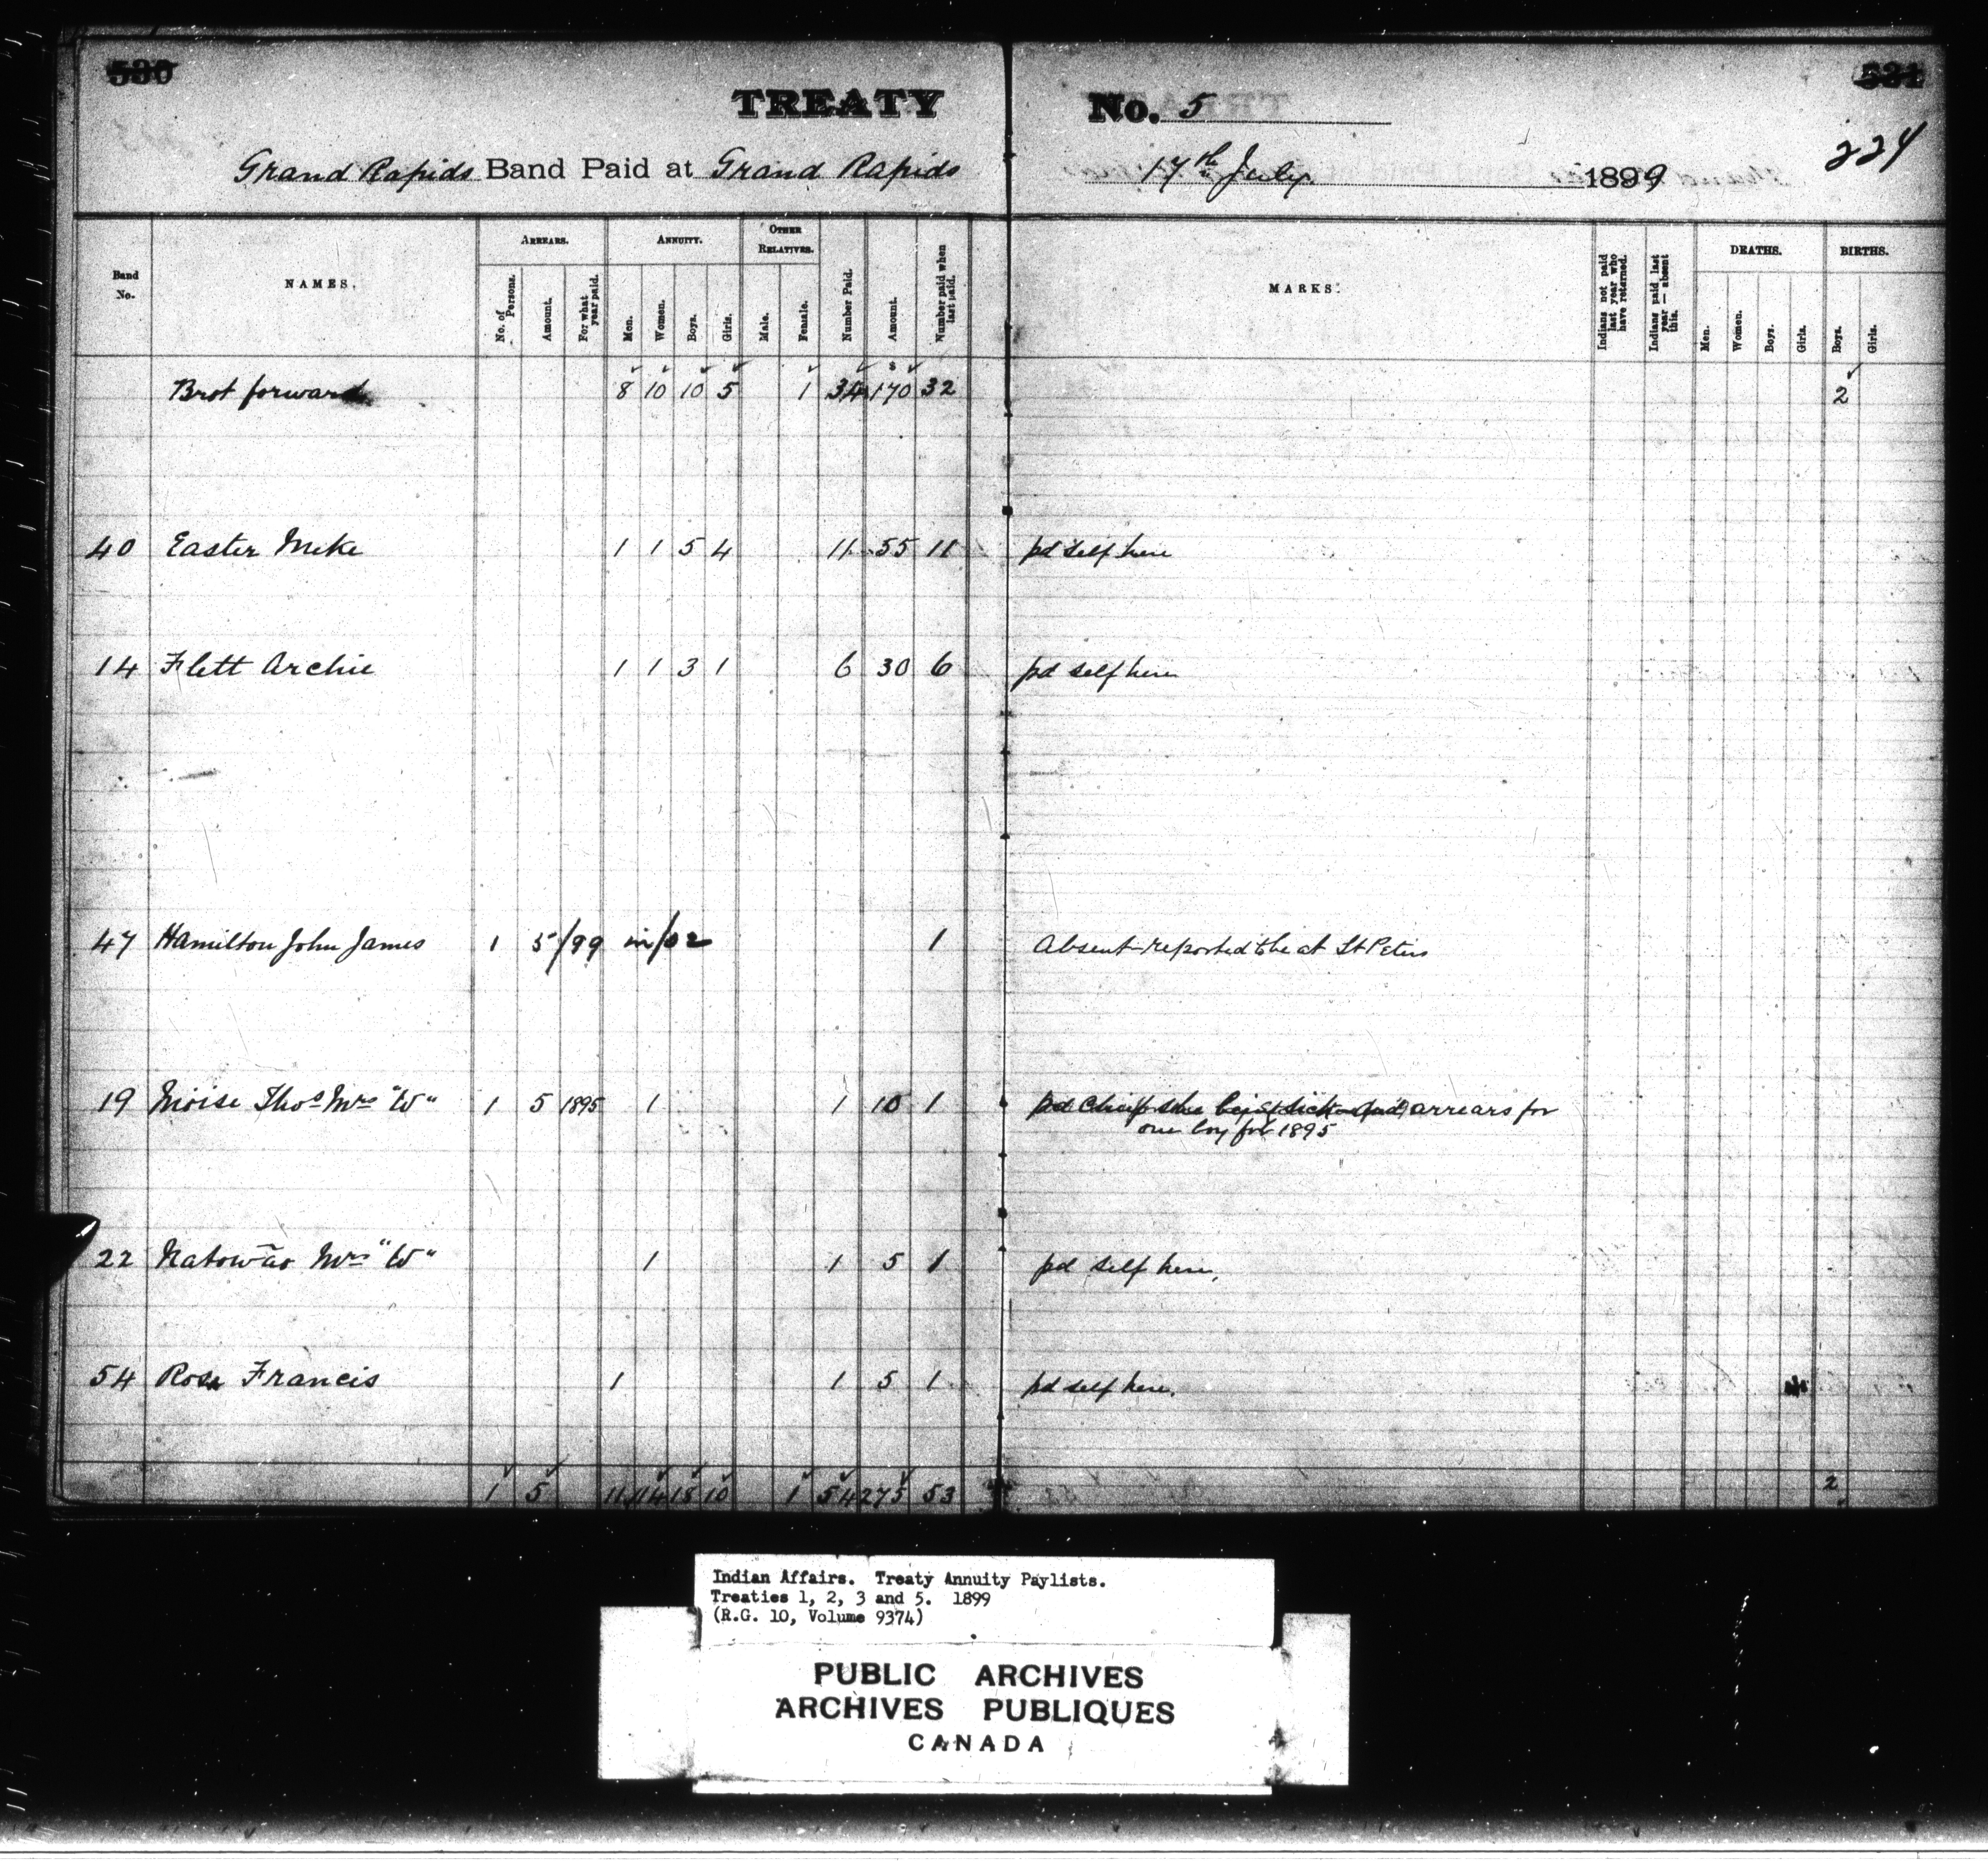 530
531
TREATY No. 5
224
Grand Rapids Band Paid at Grand Rapids 17th July. 1899
Band No. NAMES. ARREARS. ANNUITY. OTHER RELATIVES. Number Paid. Amount. Number paid when last paid. MARKS. Indians not paid last year who have returned. Indians paid last year — absent this. DEATHS. BIRTHS.
No. of Persons. Amount. For what year paid. Men. Women. Boys. Girls. Male. Female. Men. Women. Boys. Girls. Boys. Girls.
Brot forward 8 10 10 5 1 34 170 32 2
40 Easter Mike 1 1 5 4 11 55 11 pd self here
14 Flett Archie 1 1 3 1 6 30 6 pd self here
47 Hamilton John James 1 5/99 in/02 1 Absent-reported to be at St Peters
19 Moise Thos Mrs "W" 1 5 1895 1 1 10 1 pd Chief she being sick and arrears for
one boy for 1895
22 Natowao Mrs "W" 1 1 5 1 pd self here,
54 Ross Francis 1 1 5 1 pd self here.
1 5 11 14 18 10 1 54 275 53 2
Indian Affairs. Treaty Annuity Paylists.
Treaties 1, 2, 3 and 5. 1899
(R.G. 10, Volume 9374)
PUBLIC ARCHIVES
ARCHIVES PUBLIQUES
CANADA